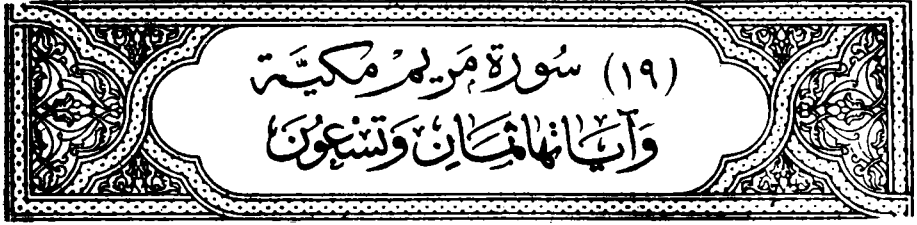 (١٩) سُورَةُ مَرْيَمْ مَكِيَّة
وَآيَاتُهَا ثَمَانِ وَتِسْعُونَ